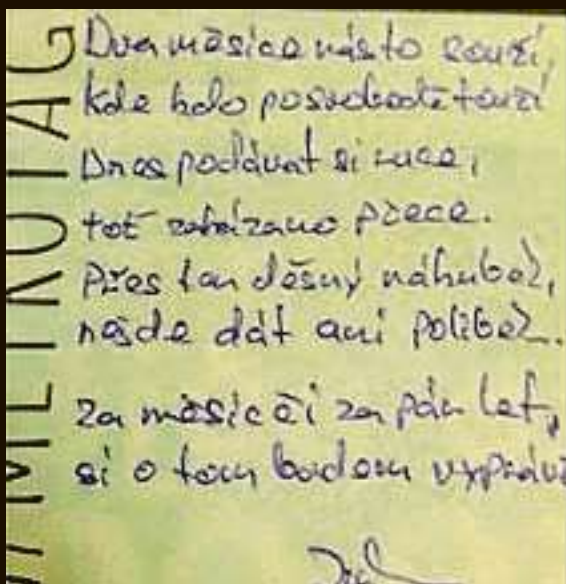 Dva měsíce nás to souží,
kde kdo po svobodě touží
Dnes podávat si ruce,
toť zakázano přece.
Přes ten děsný náhubek,
nejde dát ani polibek.
Za měsíc či za pár let,
si o tom budem vyprávě